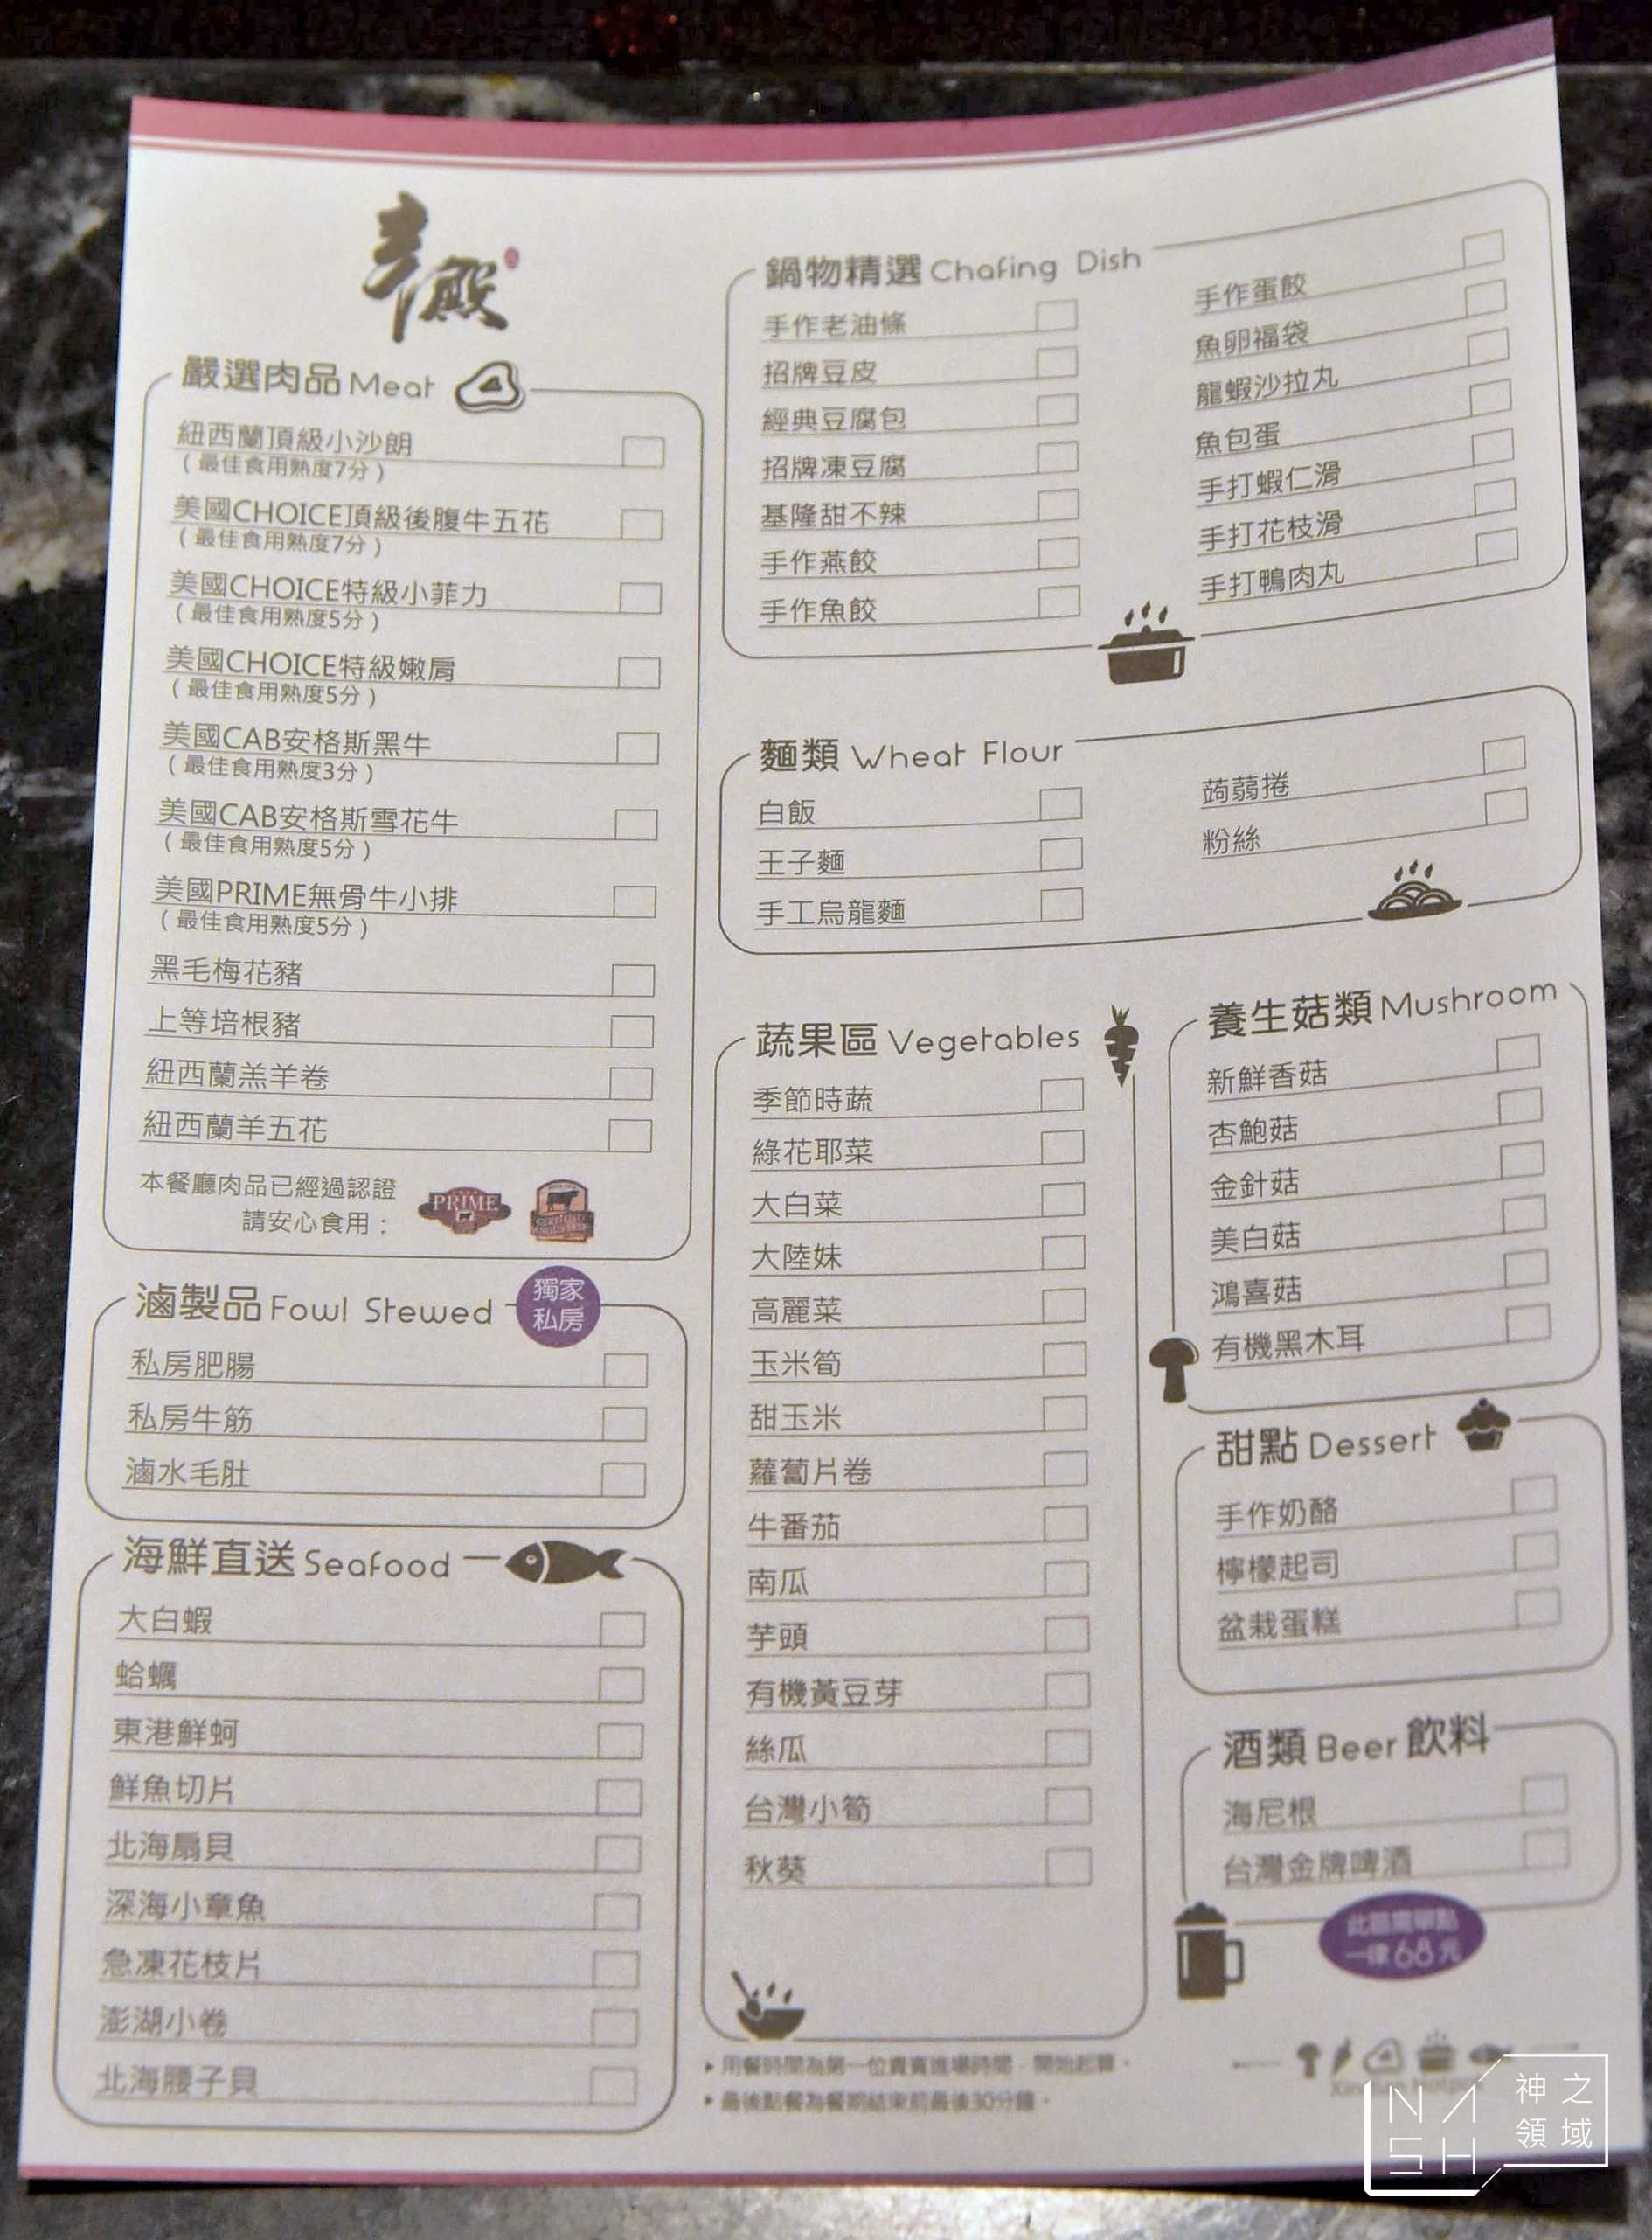 辛殿
嚴選肉品 Meat
紐西蘭頂級小沙朗
（最佳食用熟度7分）
美國CHOICE頂級後腹牛五花
（最佳食用熟度7分）
美國CHOICE特級小菲力
（最佳食用熟度5分）
美國CHOICE特級嫩肩
（最佳食用熟度5分）
美國CAB安格斯黑牛
（最佳食用熟度3分）
美國CAB安格斯雪花牛
（最佳食用熟度5分）
美國PRIME無骨牛小排
（最佳食用熟度5分）
黑毛梅花豬
上等培根豬
紐西蘭羔羊卷
紐西蘭羊五花
本餐廳肉品已經過認證
請安心食用：
PRIME
滷製品 Fowl Stewed
獨家
私房
私房肥腸
私房牛筋
滷水毛肚
海鮮直送 Seafood
大白蝦
蛤蠣
東港鮮蚵
鮮魚切片
北海扇貝
深海小章魚
急凍花枝片
澎湖小卷
北海腰子貝
鍋物精選 Chafing Dish
手作老油條
招牌豆皮
經典豆腐包
招牌凍豆腐
基隆甜不辣
手作燕餃
手作魚餃
手作蛋餃
魚卵福袋
龍蝦沙拉丸
魚包蛋
手打蝦仁滑
手打花枝滑
手打鴨肉丸
麵類 Wheat Flour
白飯
王子麵
手工烏龍麵
蒟蒻捲
粉絲
蔬果區 Vegetables
季節時蔬
綠花耶菜
大白菜
大陸妹
高麗菜
玉米筍
甜玉米
蘿蔔片卷
牛番茄
南瓜
芋頭
有機黃豆芽
絲瓜
台灣小筍
秋葵
養生菇類 Mushroom
新鮮香菇
杏鮑菇
金針菇
美白菇
鴻喜菇
有機黑木耳
甜點 Dessert
手作奶酪
檸檬起司
盆栽蛋糕
酒類 Beer 飲料
海尼根
台灣金牌啤酒
一律68元
▸用餐時間為第一位貴賓進場時間，開始起算。
▸最後點餐為餐期結束前最後30分鐘。
NASH
神之
領域